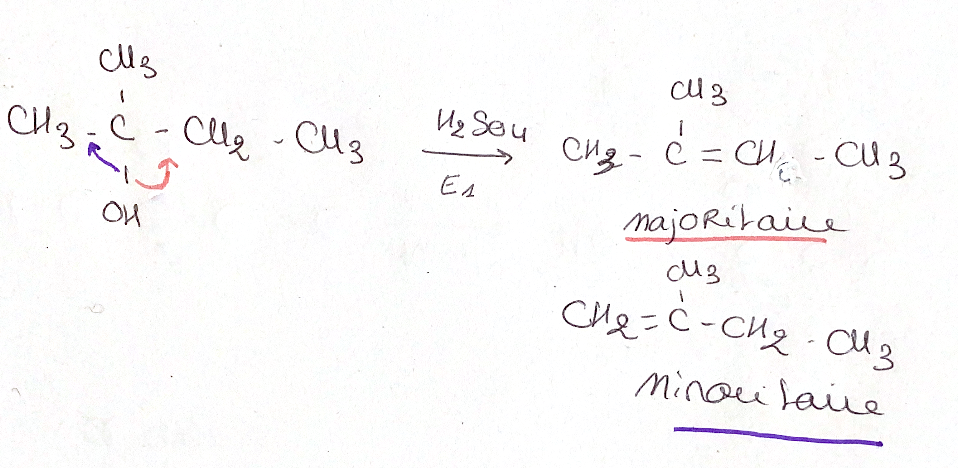 CH3
CH3 - C - CH2 - CH3
OH
H2SO4
E1
CH3
CH3 - C = CH - CH3
majoritaire
CH3
CH2 = C - CH2 - CH3
Minoritaire